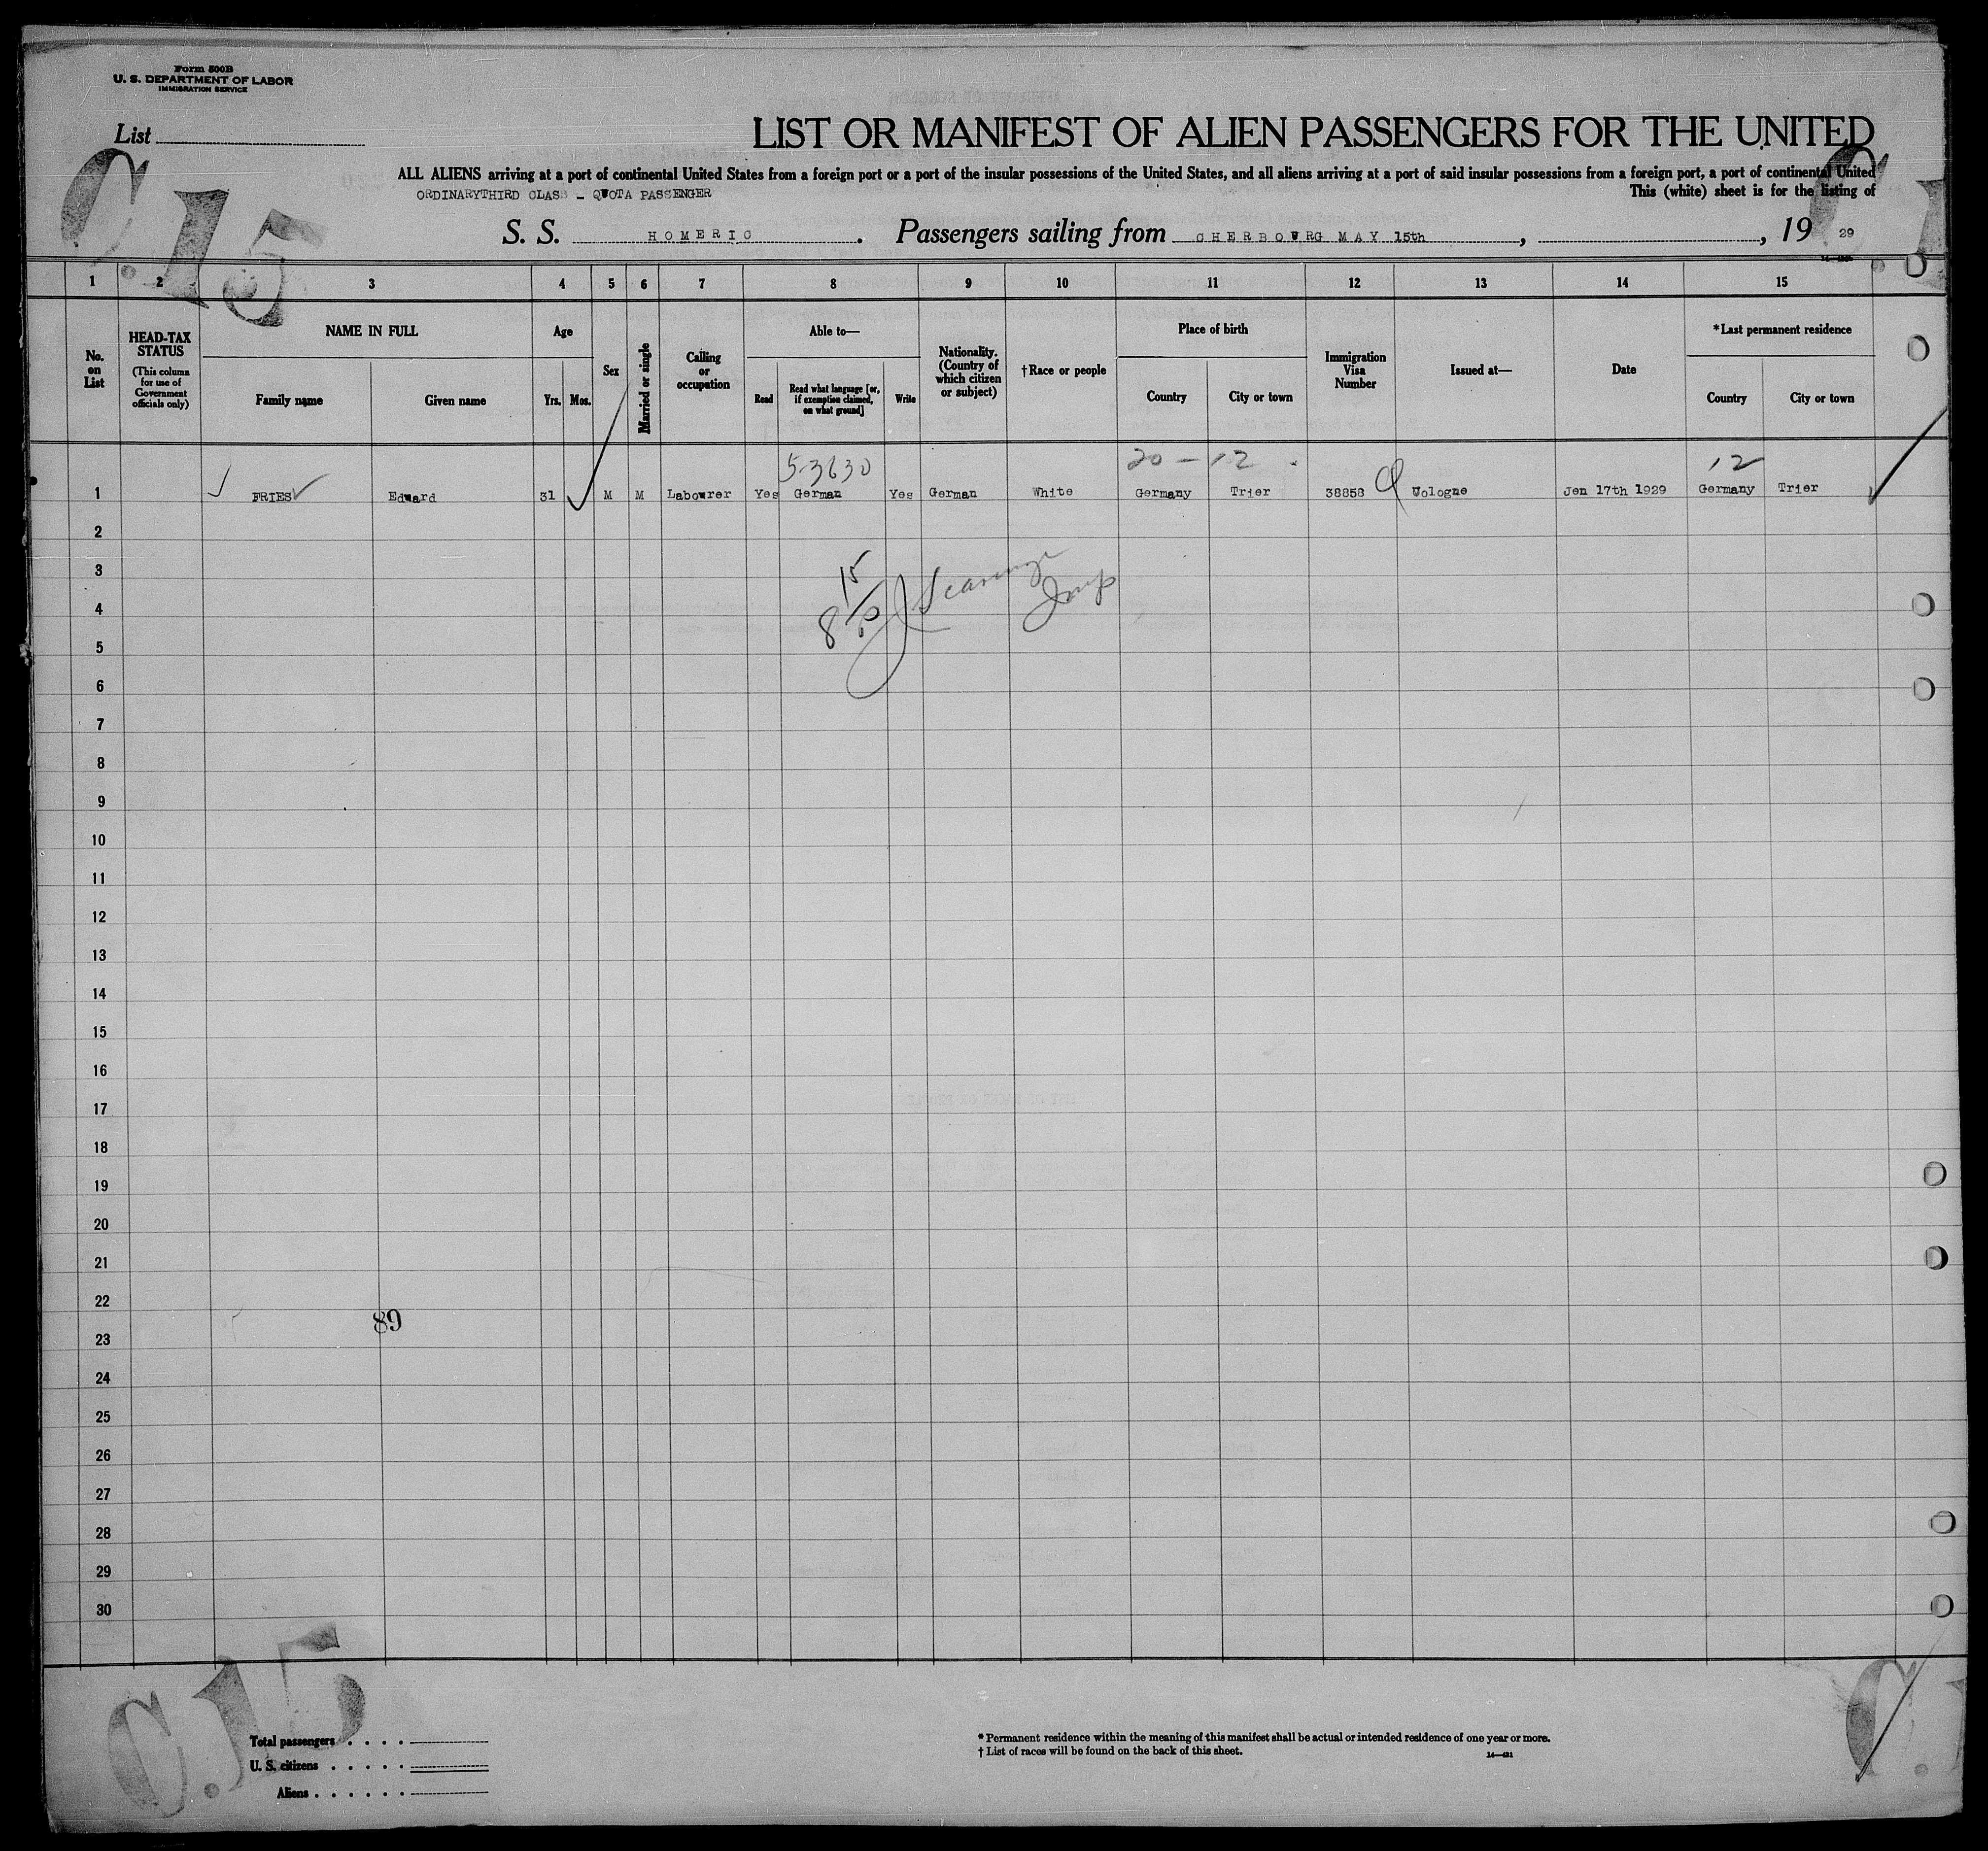 Form 500B
U. S. DEPARTMENT OF LABOR
IMMIGRATION SERVICE
List
LIST OR MANIFEST OF ALIEN PASSENGERS FOR THE UNITED
ALL ALIENS arriving at a port of continental United States from a foreign port or a port of the insular possessions of the United States, and all aliens arriving at a port of said insular possessions from a foreign port, a port of continental United
ORDINARYTHIRD CLASS - QUOTA PASSENGER
This (white) sheet is for the listing of
C.15
S. S. HOMERIC. Passengers sailing from CHERBOURG MAY 15th, , 19 29
1 2 3 4 5 6 7 8 9 10 11 12 13 14 15
No. on List
HEAD-TAX STATUS
(This column for use of Government officials only)
NAME IN FULL
Family name
Given name
Age
Yrs. Mos.
Sex
Married or single
Calling or occupation
Able to—
Read
Read what language [or, if exemption claimed, on what ground]
Write
Nationality. (Country of which citizen or subject)
†Race or people
Place of birth
Country
City or town
Immigration Visa Number
Issued at—
Date
*Last permanent residence
Country
City or town
5-3630 20 - 12 12
1 FRIES Edward 31 M M Labourer Yes German Yes German White Germany Trier 38858 Cologne Jen 17th 1929 Germany Trier
2
3
4
5
6
7
8
9
10
11
12
13
14
15
16
17
18
19
20
21
22
89
23
24
25
26
27
28
29
30
C.15
Total passengers
U. S. citizens
Aliens
* Permanent residence within the meaning of this manifest shall be actual or intended residence of one year or more.
† List of races will be found on the back of this sheet.
14—421